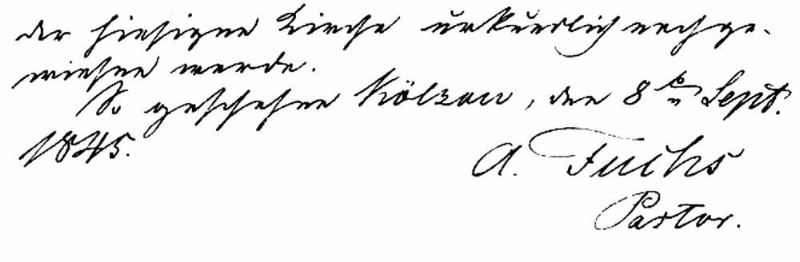 der hiesigen Kirche urkundlich nachge-
wiesen werde.
So geschehen Kölzau, den 8ten Sept.
1845.
A. Fuchs
Pastor.